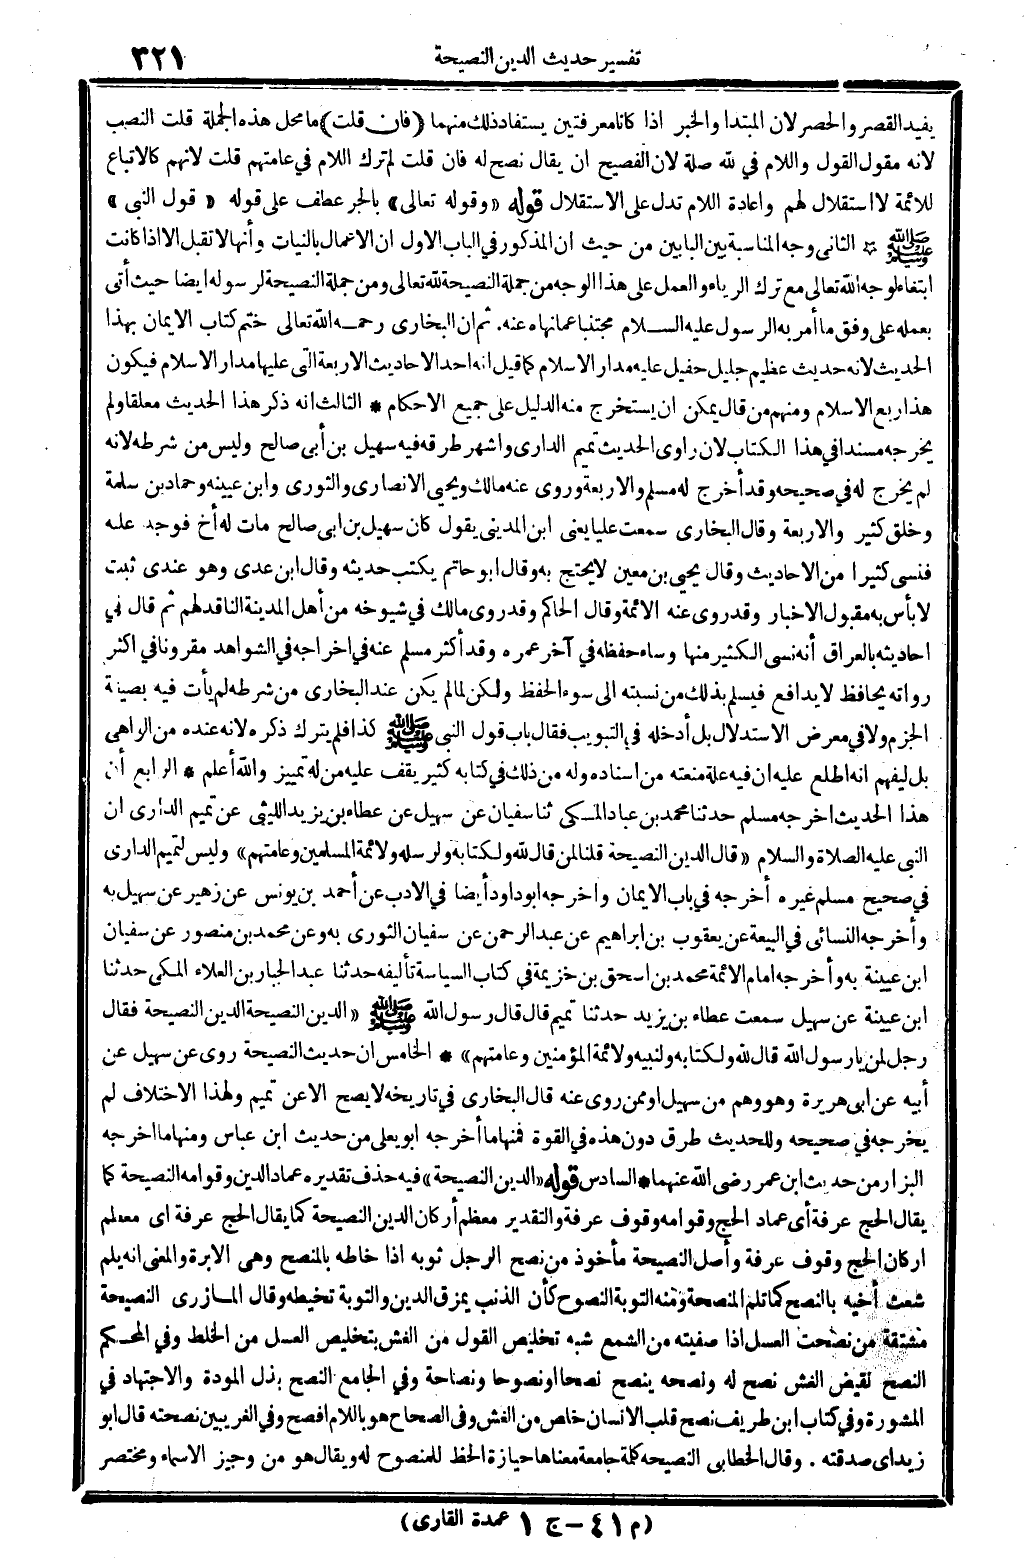 تفسير حديث الدين النصيحة ٣٢١
يفيد القصر والحصر لان المبتدا والخبر اذا كانا معرفتين يستفاد ذلك منهما (فان قلت) ما محل هذه الجملة قلت النصب
لانه مقول القول واللام في لله صلة لان الفصيح ان يقال نصح له فان قلت لم ترك اللام في عامتهم قلت لانهم كالاتباع
للائمة لا استقلال لهم واعادة اللام تدل على الاستقلال قوله «وقوله تعالى» بالجر عطف على قوله «قول النبي»
ﷺ ☆ الثانى وجه المناسبة بين البابين من حيث ان المذكور في الباب الاول ان الاعمال بالنيات وأنها لا تقبل الا اذا كانت
ابتغاء لوجه الله تعالى مع ترك الرياء والعمل على هذا الوجه من جملة النصيحة لله تعالى ومن جملة النصيحة لرسوله ايضا حيث أتى
بعمله على وفق ما أمر به الرسول عليه السلام مجتنبا عما نهاه عنه. ثم ان البخارى رحمه الله تعالى ختم كتاب الايمان بهذا
الحديث لانه حديث عظيم جليل حفيل عليه مدار الاسلام كما قيل انه احد الاحاديث الاربعة التى عليها مدار الاسلام فيكون
هذا ربع الاسلام ومنهم من قال يمكن ان يستخرج منه الدليل على جميع الاحكام * الثالث انه ذكر هذا الحديث معلقا ولم
يخرجه مسندا في هذا الكتاب لان راوى الحديث تميم الدارى واشهر طرقه فيه سهيل بن أبى صالح وليس من شرطه لانه
لم يخرج له في صحيحه وقد أخرج له مسلم والاربعة وروى عنه مالك ويحيى الانصارى والثورى وابن عيينه وحماد بن سلمة
وخلق كثير والاربعة وقال البخارى سمعت عليا يعنى ابن المدينى يقول كان سهيل بن ابى صالح مات له أخ فوجد عليه
فنسى كثيرا من الاحاديث وقال يحيى بن معين لا يحتج به وقال ابو حاتم يكتب حديثه وقال ابن عدى وهو عندى ثبت
لا بأس به مقبول الاخبار وقد روى عنه الائمة وقال الحاكم وقد روى مالك في شيوخه من أهل المدينة الناقد لهم ثم قال في
احاديثه بالعراق أنه نسى الكثير منها وساء حفظه في آخر عمره وقد أكثر مسلم عنه في اخراجه في الشواهد مقرونا في اكثر
رواته بحافظ لا يدافع فيسلم بذلك من نسبته الى سوء الحفظ ولكن لما لم يكن عند البخارى من شرطه لم يأت فيه بصيغة
الجزم ولا في معرض الاستدلال بل أدخله في التبويب فقال باب قول النبى ﷺ كذا فلم يترك ذكره لانه عنده من الواهى
بل ليفهم انه اطلع عليه ان فيه علة منعته من اسناده وله من ذلك في كتابه كثير يقف عليه من له تمييز والله أعلم * الرابع أن
هذا الحديث اخرجه مسلم حدثنا محمد بن عباد المكى ثنا سفيان عن سهيل عن عطاء بن يزيد الليثى عن تميم الدارى ان
النبى عليه الصلاة والسلام «قال الدين النصيحة قلنا لمن قال لله ولكتابه ولرسله ولائمة المسلمين وعامتهم» وليس لتميم الدارى
في صحيح مسلم غيره أخرجه في باب الايمان واخرجه ابو داود أيضا في الادب عن أحمد بن يونس عن زهير عن سهيل به
وأخرجه النسائى في البيعة عن يعقوب بن ابراهيم عن عبد الرحمن عن سفيان الثورى به وعن محمد بن منصور عن سفيان
ابن عيينة به وأخرجه امام الائمة محمد بن اسحق بن خزيمة في كتاب السياسة تأليفه حدثنا عبد الجبار بن العلاء المكى حدثنا
ابن عيينة عن سهيل سمعت عطاء بن يزيد حدثنا تميم قال قال رسول الله ﷺ «الدين النصيحة الدين النصيحة فقال
رجل لمن يا رسول الله قال لله ولكتابه ولنبيه ولائمة المؤمنين وعامتهم» * الخامس ان حديث النصيحة روى عن سهيل عن
أبيه عن ابى هريرة وهو وهم من سهيل او ممن روى عنه قال البخارى في تاريخه لا يصح الا عن تميم ولهذا الاختلاف لم
يخرجه في صحيحه وللحديث طرق دون هذه في القوة فمنها ما أخرجه ابو يعلى من حديث ابن عباس ومنها ما اخرجه
البزار من حديث ابن عمر رضى الله عنهما * السادس قوله «الدين النصيحة» فيه حذف تقديره عماد الدين وقوامه النصيحة كما
يقال الحج عرفة أى عماد الحج وقوامه وقوف عرفة والتقدير معظم أركان الدين النصيحة كما يقال الحج عرفة اى معظم
اركان الحج وقوف عرفة وأصل النصيحة مأخوذ من نصح الرجل ثوبه اذا خاطه بالمنصح وهى الابرة والمعنى انه يلم
شعث أخيه بالنصح كما تلم المنصحة ومنه التوبة النصوح كأن الذنب يمزق الدين والتوبة تخيطه وقال المازرى النصيحة
مشتقة من نصحت العسل اذا صفيته من الشمع شبه تخليص القول من الغش بتخليص العسل من الخلط وفي المحكم
النصح نقيض الغش نصح له ونصحه ينصح نصحا ونصوحا ونصاحة وفي الجامع النصح بذل المودة والاجتهاد في
المشورة وفي كتاب ابن طريف نصح قلب الانسان خلص من الغش وفى الصحاح هو باللام افصح وفي الغريبين نصحته قال ابو
زيد اى صدقته . وقال الخطابى النصيحه كلمة جامعة معناها حيازة الحظ للمنصوح له ويقال هو من وجيز الاسماء ومختصر
(م ٤١ – ج ١ عمدة القارى)